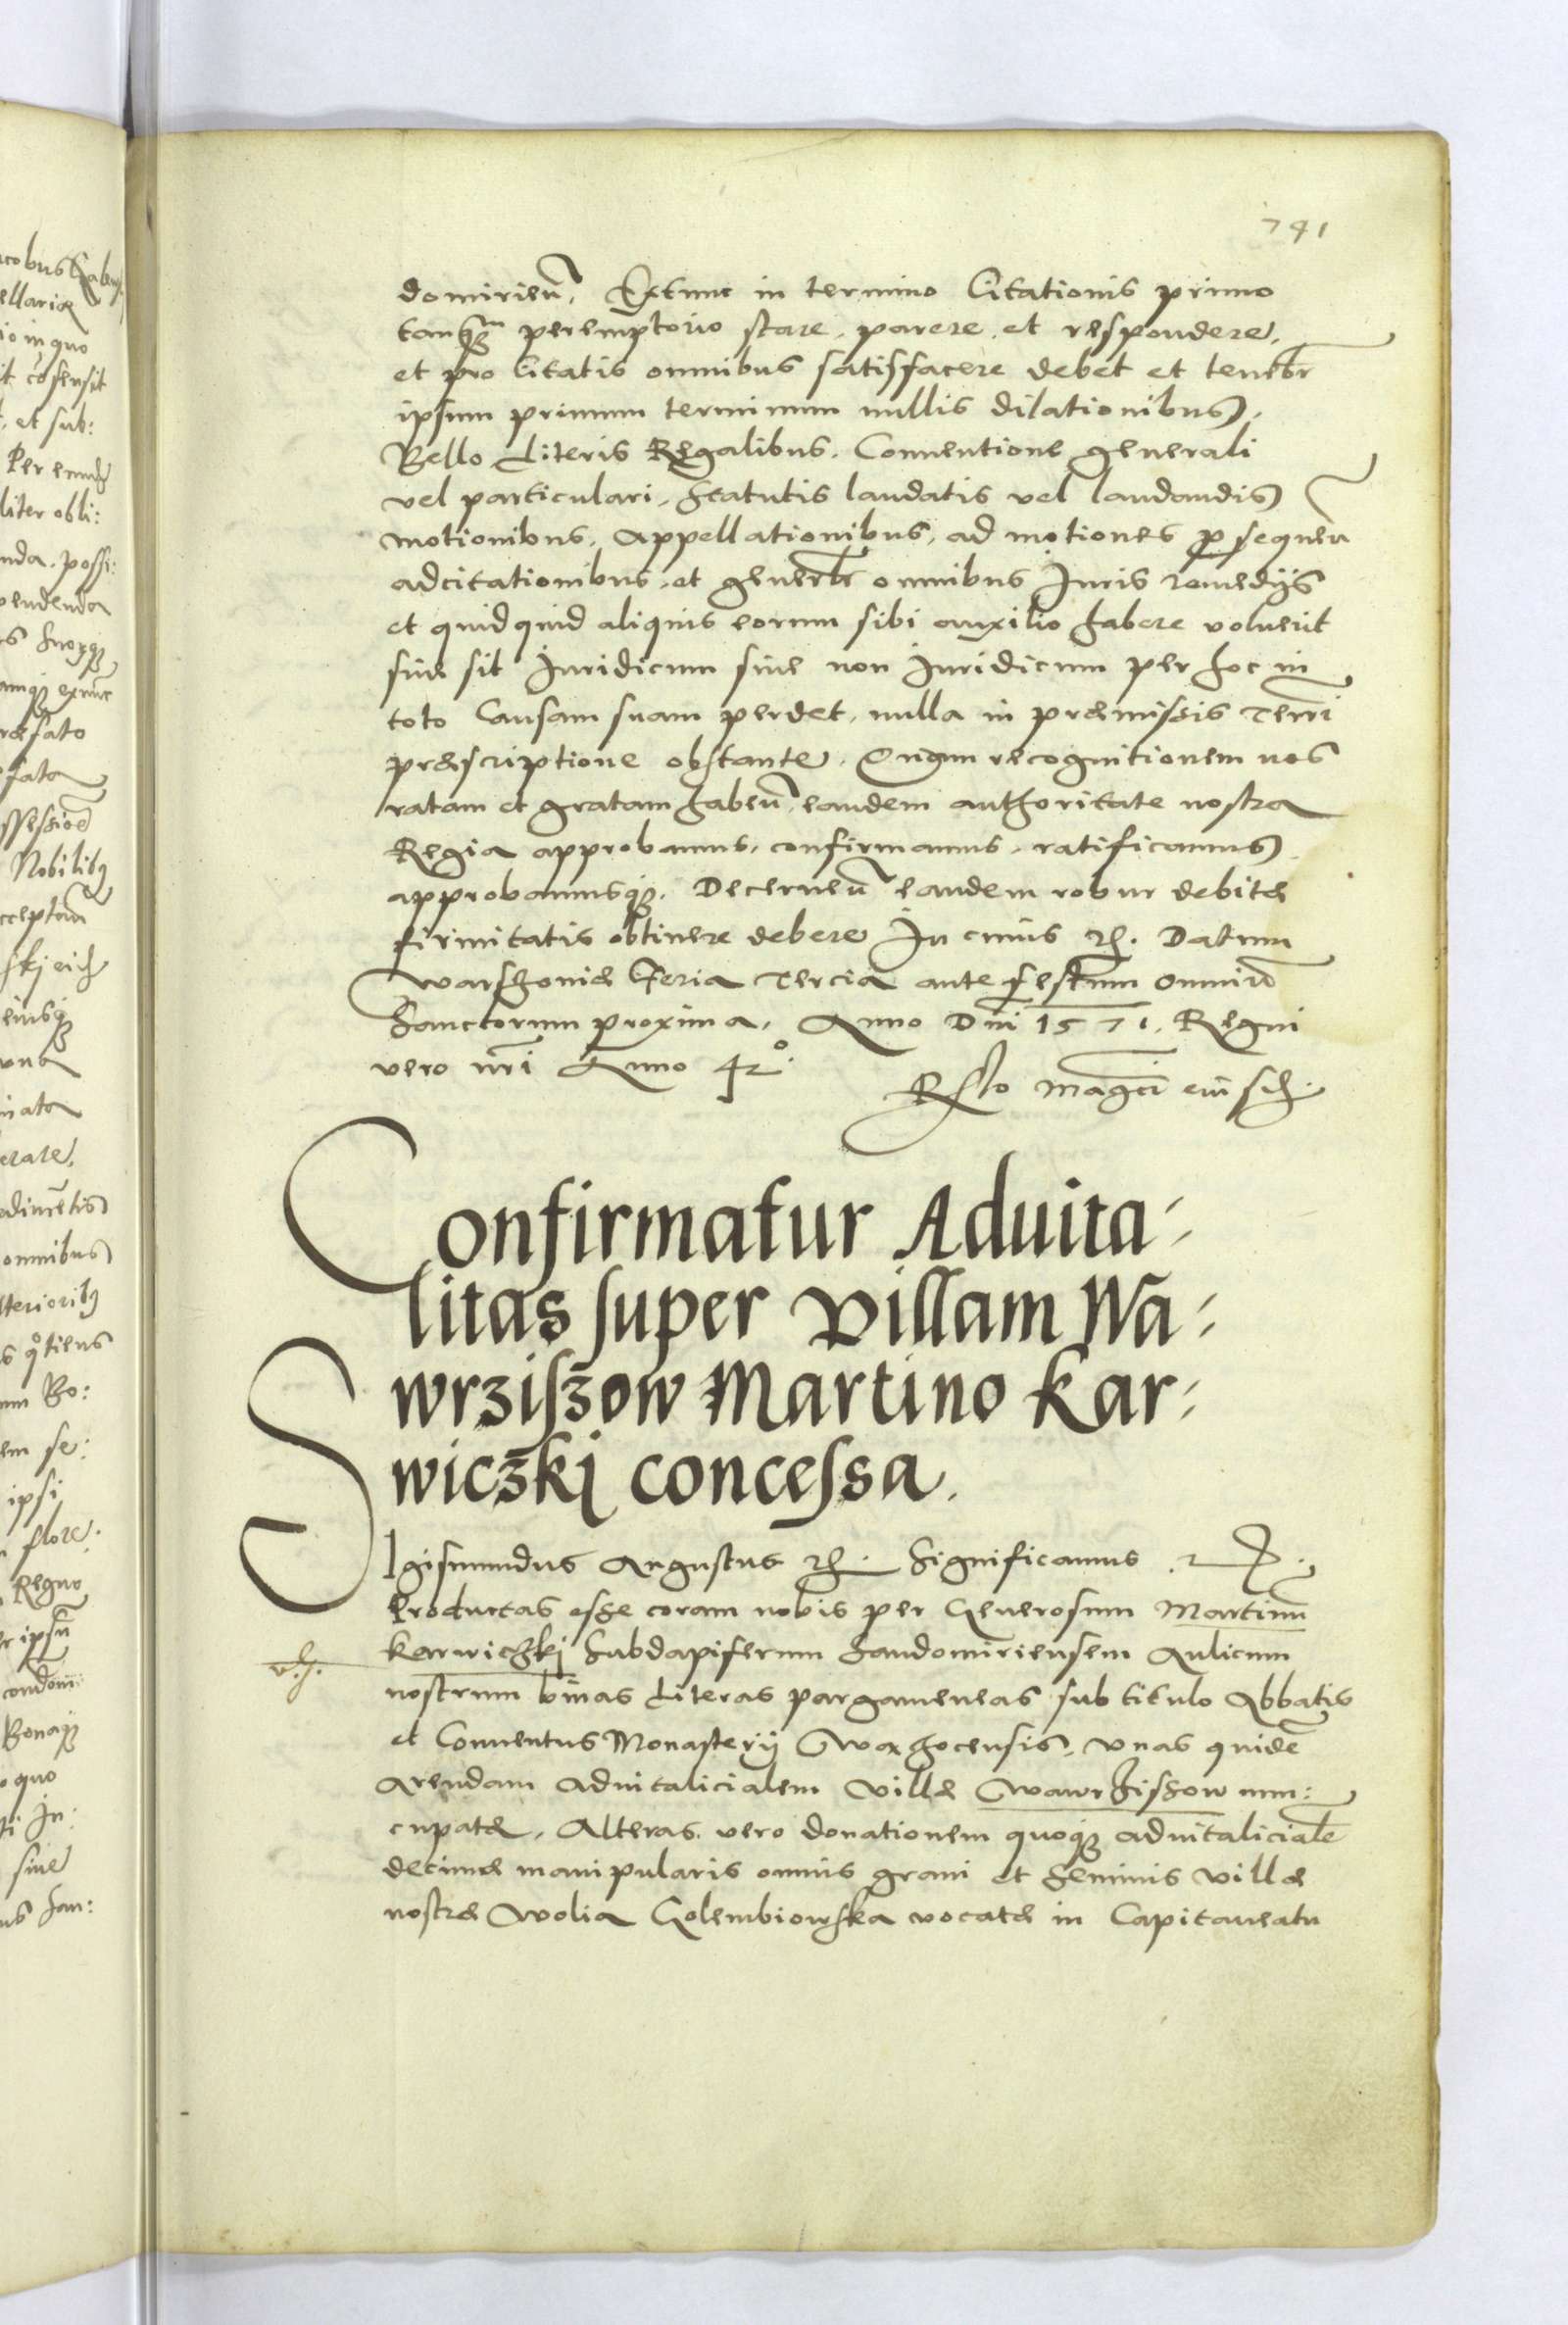 741
domirieñ, Extunc in termino Citationis primo
tanq̃ peremptorio stare, parere, et respondere,
et pro Citatis omnibus satisfacere debet et tenebr̃
ipsum primum terminum nullis dilationibus,
Bello Literis Regalibus, Conuentione generali
vel particulari, Statutis laudatis vel laudandis
motionibus, Appellationibus, ad motiones p sequeñ
adcitationibus, et generlr̃ omnibus Juris remedijs
et quidquid aliquis eorum sibi auxilio habere voluerit
siue sit Juridicum siue non Juridicum per hoc in
toto Causam suam perdet, nulla in præmissis Terrĩ
præscriptione obstante. Quam recognitionem nos
ratam et gratam habeñ, eandem authoritate nostra
Regia approbamus, confirmamus, ratificamus,
approbamusq̃, Decerneñ eandem robur debitæ
firmitatis obtinere debere In cuius rei. Datum
Warschouiæ Feria Tercia ante festum Omniũ
Sanctorum proxima, Anno Dñi 1571. Regni
vero nr̃i Anno 42°.
Relatio Mag̃ci eiusdem.
Confirmatur Aduita-
litas super villam Wa-
wrziszow Martino Kar-
wiczki concessa.
SIgismundus Augustus rei. Significamus
Productas esse coram nobis per Generosum Martinũ
Karwiczkj Subdapiferum Sandomiriensem Aulicum
nostrum binas Literas pargameneas sub titulo Abbatis
et Conuentus Monasterij Wąchocensis, vnas quidẽ
Arendam Aduitalicialem Villæ Wawrziszow nun:
cupatæ, Alteras vero donationem quoq̃ aduitalicialẽ
decimæ manipularis omnis grani et Seminis Villæ
nostræ Wolia Golembiowska vocatæ in Capitaneatu